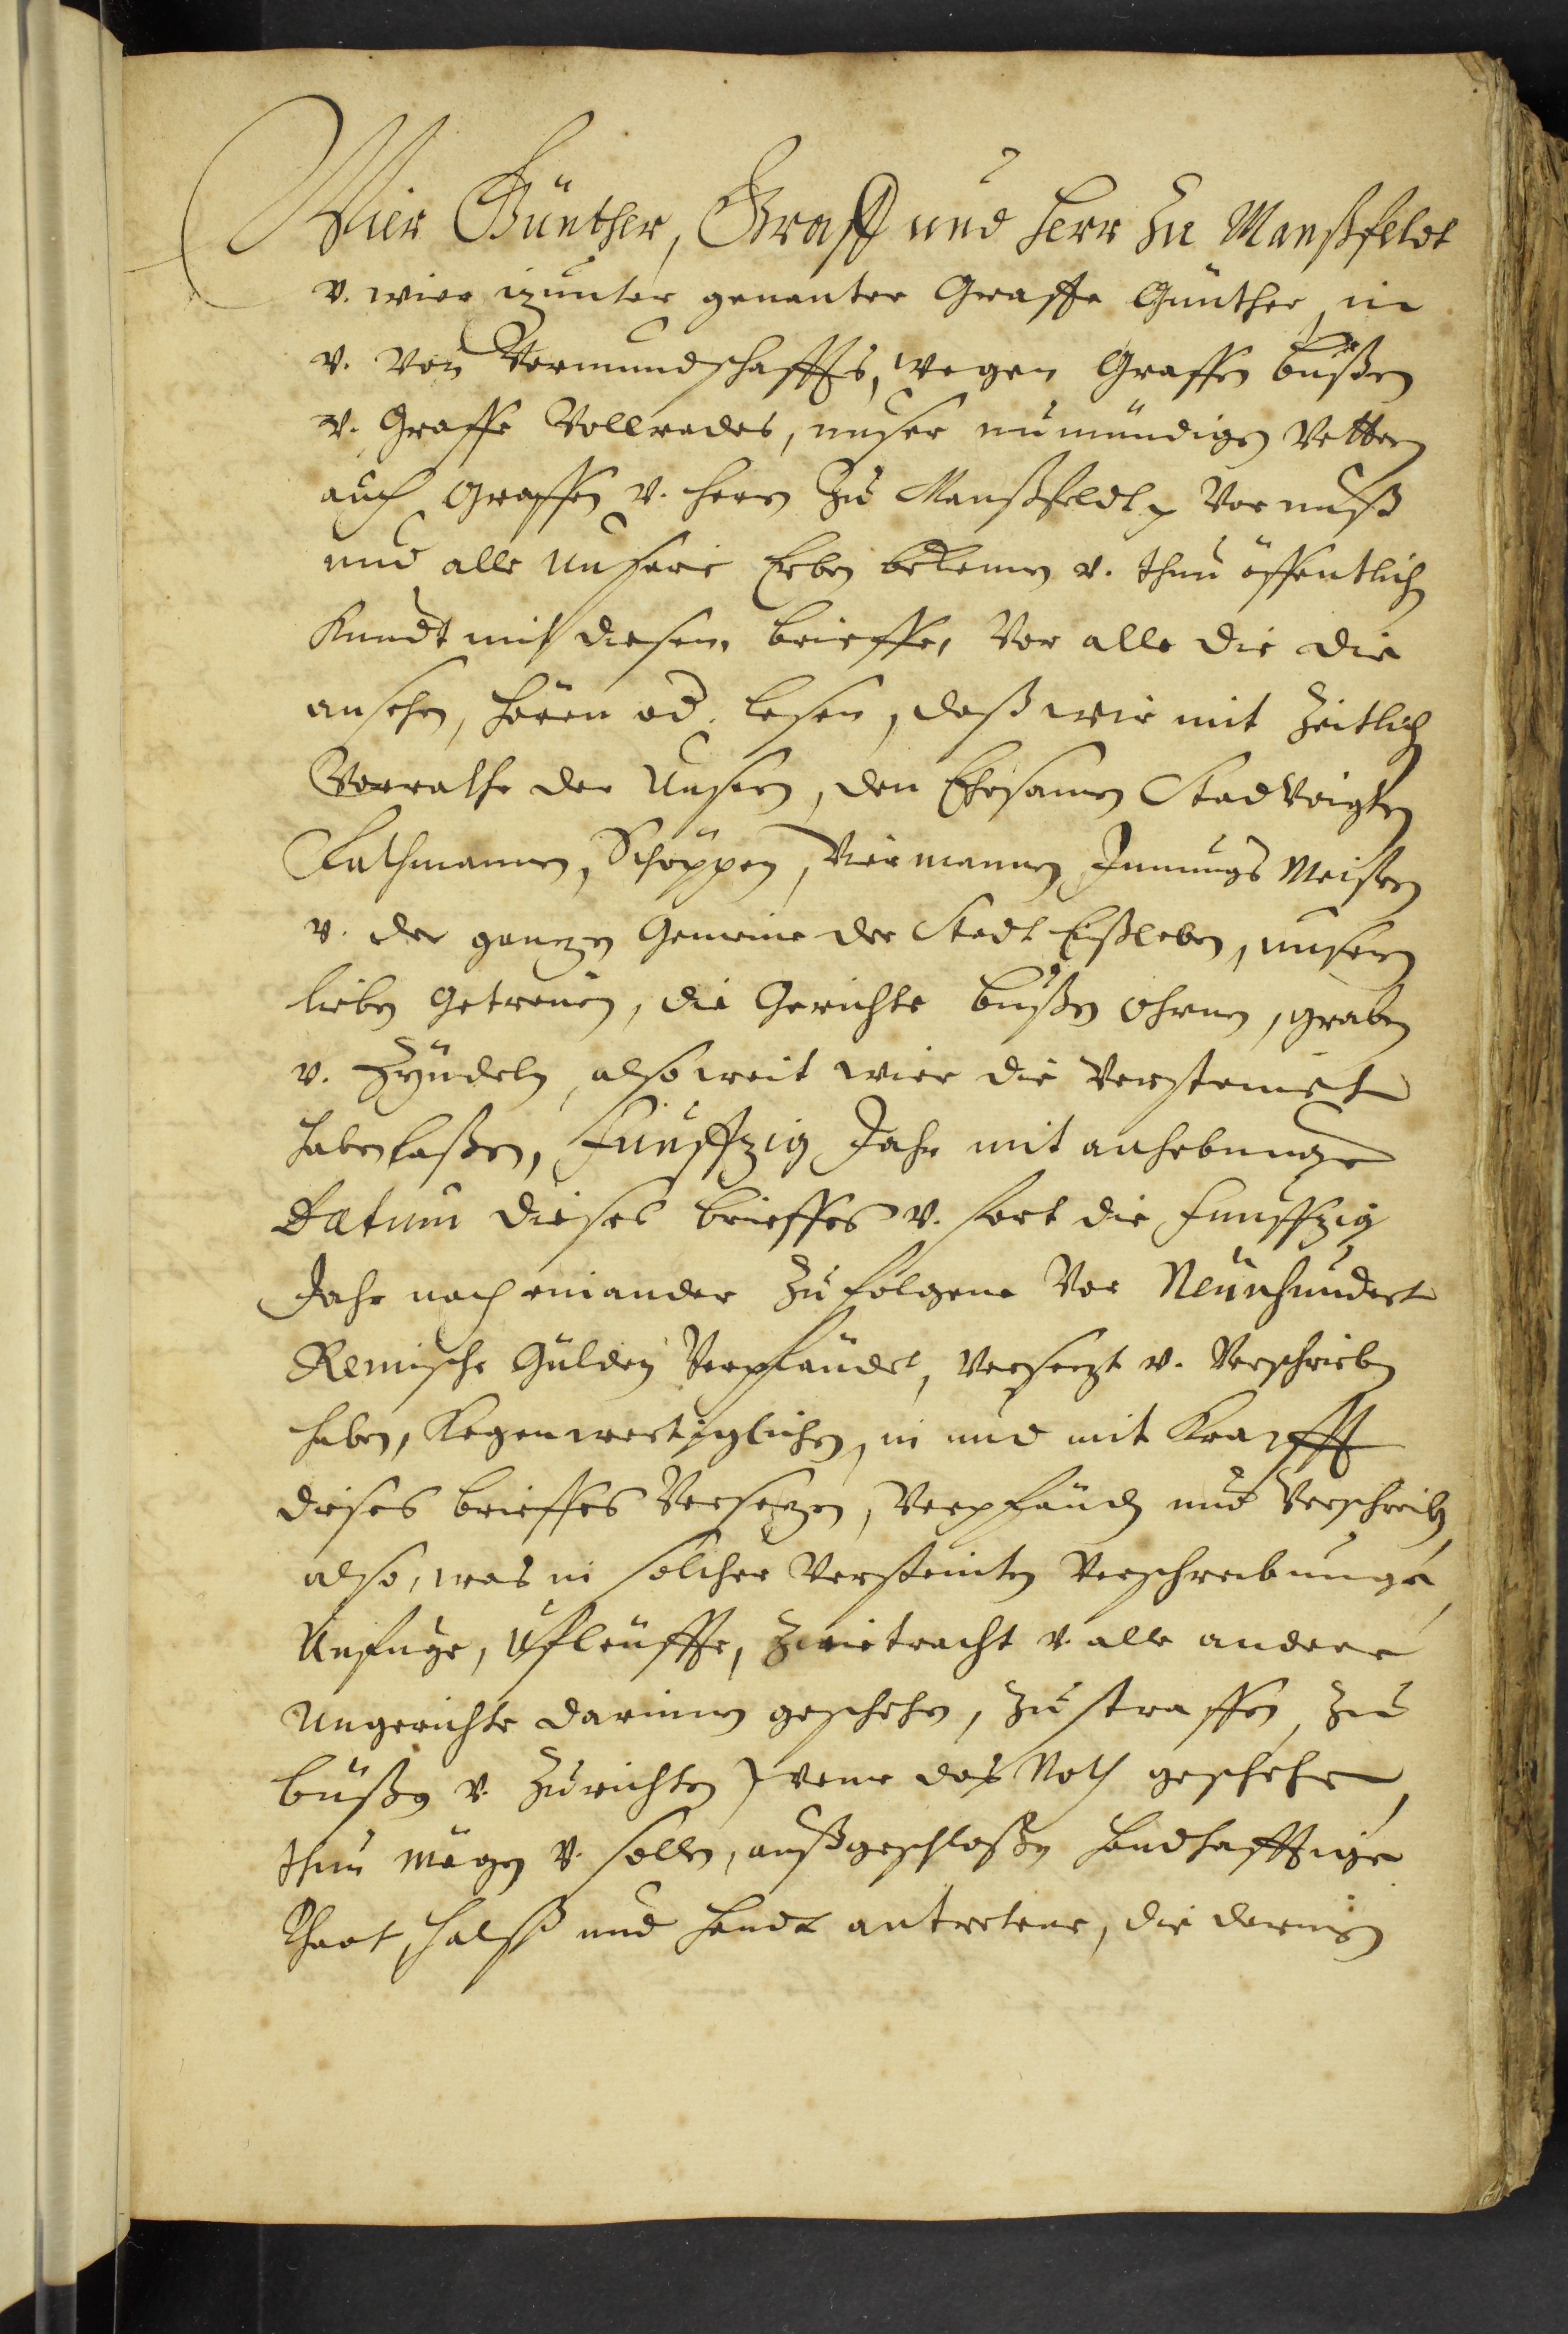 Wier Günther, Graff und Herr zu Manßfeldt
v. wier izunter genanter Graffe Günther, in
v. von Vormundschaffts, wegen Graffen bußen
v. Graffe Vollrades, unser unmündigen Vettern
auch Graffen v. Herrn zu Manßfeldt, Vor unß
und alle unsere Erben bekennen v. thun öffentlich
Kundt mit diesem, brieffe, Vor alle die die
ansehen, hören od. lesen, daß wir mit zeitlich
Vorrathe der Unsern, den Ehrsamen Stadvoigten
Rathmannen, Schöppen, Viermannen Innungs Meistern
v. der ganzen Gemeine der Stadt Eißleben, unsern
lieben Getreuen, die Gerichte bußen ohrnen, graben
v. Zyndeln, also weit wier die Versteinet
haben laßen, Funffzig Jahr mit anhebunge
Datum dieses brieffes v. fort die funffzig
Jahr nach einander zu folgene Vor Neunhundert
Reinische Gülden Verpfändet, Versezt v. Verschrieben
haben, Kegenwertiglichen, in und mit Krafft
dieses brieffes Versezen, Verpfänden und Verschreiben
also, was in solcher Versteinten Verschreibunge,
Unfuge, Ufleuffte, Zwietracht v. alle andere
Ungerichte darinnen geschehen, zu straffen, zu
büßen v. zu richten wenn das Noth geschehe,
thun mögen v. sollen, außgeschloßen handhafftige
That, Halß und Handt antretene, die darinnen